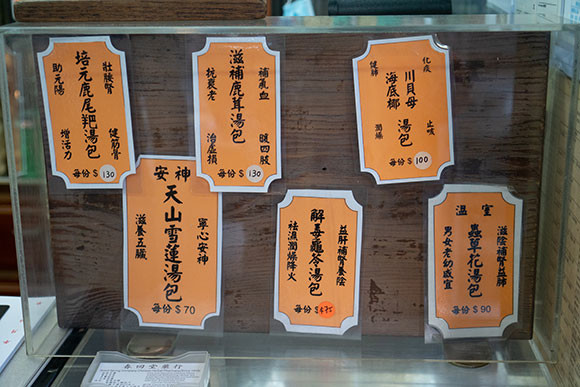 壯腰腎 健筋骨
培元鹿尾羓湯包
助元陽 增活力
每份$130
補氣血 暖四肢
滋補鹿茸湯包
抗衰老 治虛損
每份$130
化痰 止咳
川貝母
海底椰
湯包
健肺 潤燥
每份$100
安神
寧心安神
天山雪蓮湯包
滋養五臟
每份$70
益肝補腎養陰
解毒龜苓湯包
祛濕潤燥降火
每份$
溫宜
滋陰補腎益肺
蟲草花湯包
男女老幼咸宜
每份$90
春回堂藥行